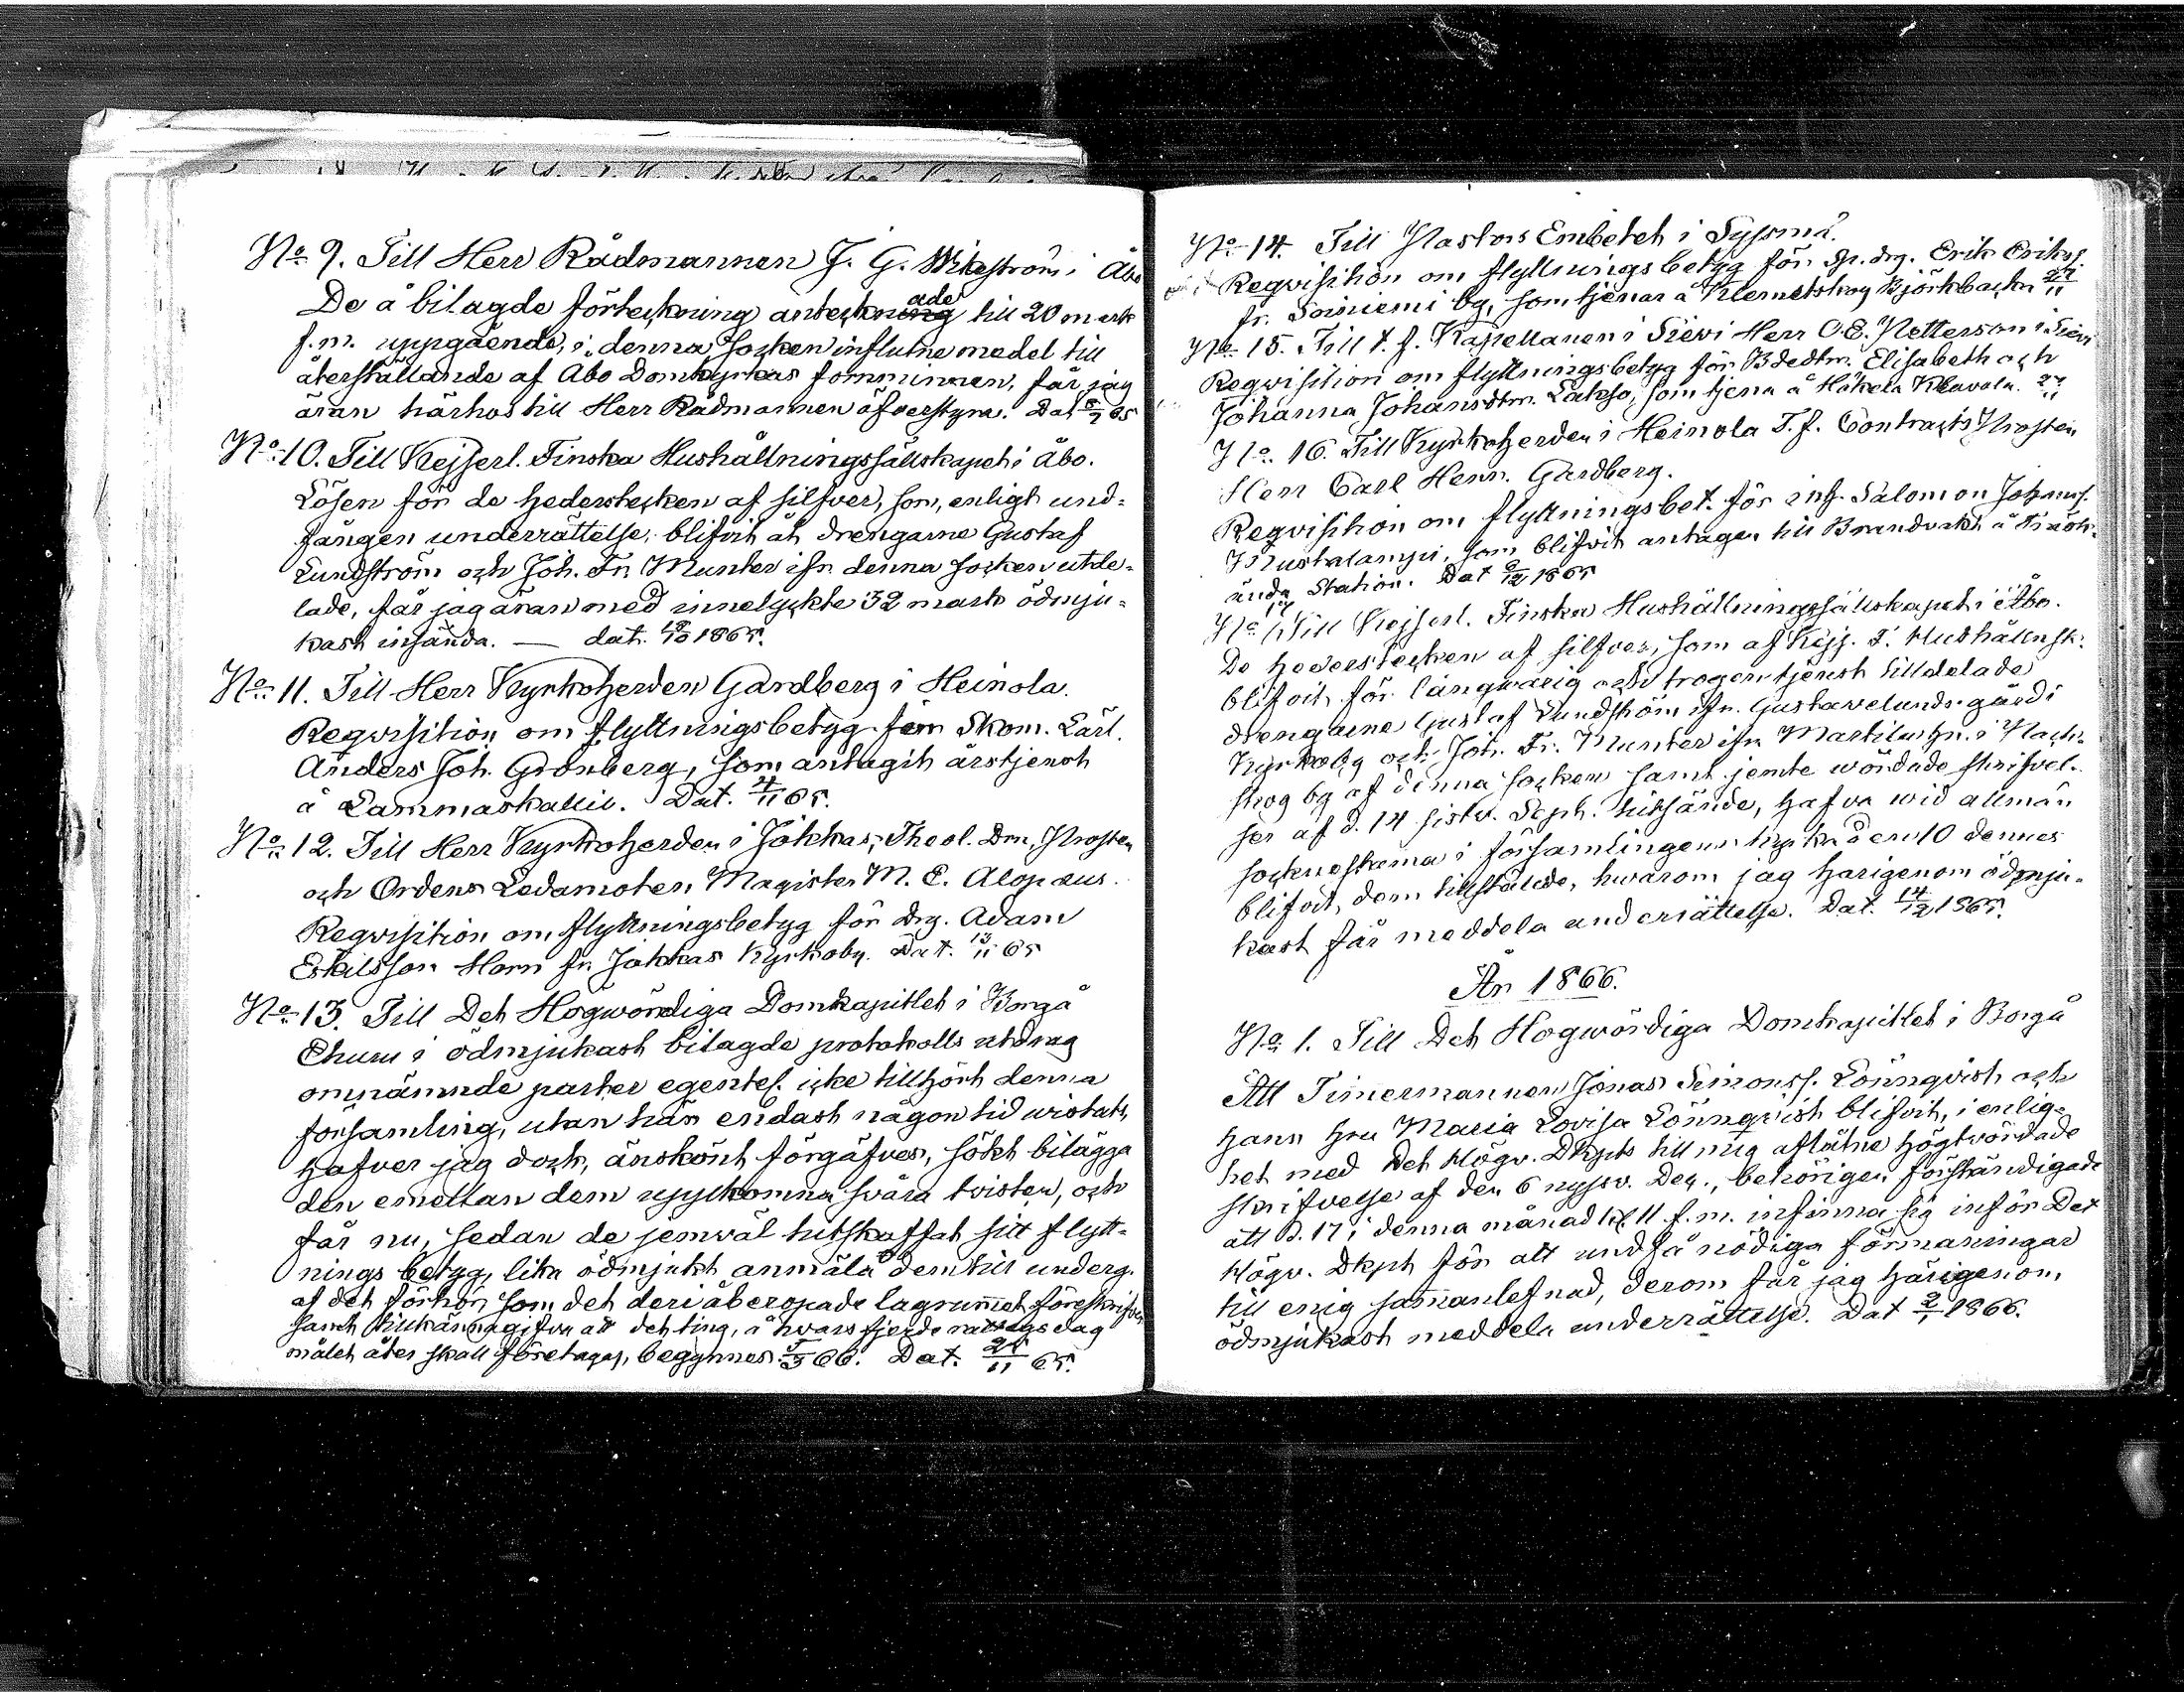 No 9. Till Herr Rådmannen J. G. Wikeström i Åbo
De å bilagde förteckning antecknade till 20 mark
s. m. uppgående, i denna socken influtne medel till
återställande af Åbo Domkyrkas fornminnen, får jag
äran härhos till Herr Rådmannen öfverstyra. Dat 65
No 10. Till Kejserl. Finska Hushållningssällskapet i Åbo.
Lösen för de hederstecken af silfver, som, enligt und-
fången underrättelse, blifvit åt drengarne Gustaf
Lundström och Joh. Fr. Munter ifr. denna socken utde-
lade, får jag äran med innelyckte 32 mark ödmju-
kast insända. — dat. 18/10 1865.
No 11. Till Herr Kyrkoherden Gardberg i Heinola.
Reqvisition om flyttningsbetyg för Skom. Lärl.
Anders Joh. Grönberg, som antagit årstjenst
å Lammaskallio. Dat. 4/11 65.
No 12. Till Herr Kyrkoherden i Jokkas, Theol. Drn, Prosten
och Ordens Ledamoten Magister M. E. Alopæus.
Reqvisition om flyttningsbetyg för Drg. Adam
Eskilsson Horn fr. Jokkas Kyrkoby. Dat. 13/11 65
No 13. Till Det Högwördiga Domkapitlet i Borgå
Ehuru i ödmjukast bilagde protokolls utdrag
omnämnde parter egentel. icke tillhört denna
församling, utan här endast någon tid wistats,
hafver jag dock, änskönt förgäfves, sökt bilägga
den emellan dem uppkomna svåra twisten, och
får nu, sedan de jemwäl hitskaffat sitt flytt-
nings betyg, lika ödmjukt anmäla dem till underg.
af det förhör som det deri åberopade lagrummet föreskrifver
samt tillkännagifva att det ting, å hvars fjerde rättegs dag
målet åter skall företagas, begynnes 5/3 66. Dat. 25/11 65.
No 14. Till Pastors Embetet i Sysmä.
Reqvisition om flyttningsbetyg för dr. Erik Eriks.
fr. Soiniemi by, som tjenar å Klemetskog Björkbacka 27/11
No 15. Till t. f. Kapellanen i Sievi Herr O. E. Netterson i Sievi
Reqvisition om flyttningsbetyg för Bdedtr. Elisabeth och
Johanna Johansdtr. Lakso, som tjena å Hakela Klavola. 27/11
No 16. Till Kyrkoherden i Heinola T. f. Contracts Prosten
Herr Carl Henr. Gardberg.
Reqvisition om flyttningsbet. för inh. Salomon Johanss.
Mustalampi, som blifvit antagen till Brandvakt å Träsk-
ända Station. Dat 9/12 1865
No 17 Till Kejserl. Finska Hushållningssällskapet i Åbo.
De hederstecken af silfver, som af Kejs. F. Hushållnsk.
blifvit för långwarig och trogen tjenst tilldelade
drengarne Gustaf Lundström ifr. Gustavelunds gård i
Kyrkoby och Joh. Fr. Munter ifr. Martila hn. i Nack-
skog by af denna socken samt jemte wördade skrifvel-
ser af d. 14 sistw. Sept. hitsände, hafva wid allmän
sockenstämma i församlingens kyrka den 10 dennes
blifvit dem tillstälde, hwarom jag härigenom ödmju-
kast får meddela underrättelse. Dat. 14/12 1865.
År 1866.
No 1. Till Det Högwördiga Domkapitlet i Borgå
Att Timermannen Jonas Simonss. Lönnqvist och
hans hru Maria Lovisa Lönnqvist blifvit, i enlig-
het med Det Högv. Dkpts till mig aflåtne högtwördade
skrifvelse af den 6 nyssv. Dec., behörigen förständigade
att d. 17 i denna månad kl. 11 f. m. infinna sig inför Det
Högv. Dkpt för att undfå nödiga förmaningar
till enig samanlefnad, derom får jag härigenom
ödmjukast meddela underrättelse. Dat 2/1 1866.